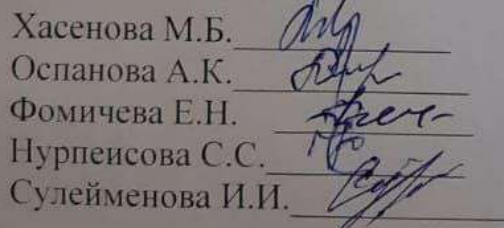 Хасенова М.Б.
Оспанова А.К.
Фомичева Е.Н.
Нурпеисова С.С.
Сулейменова И.И.